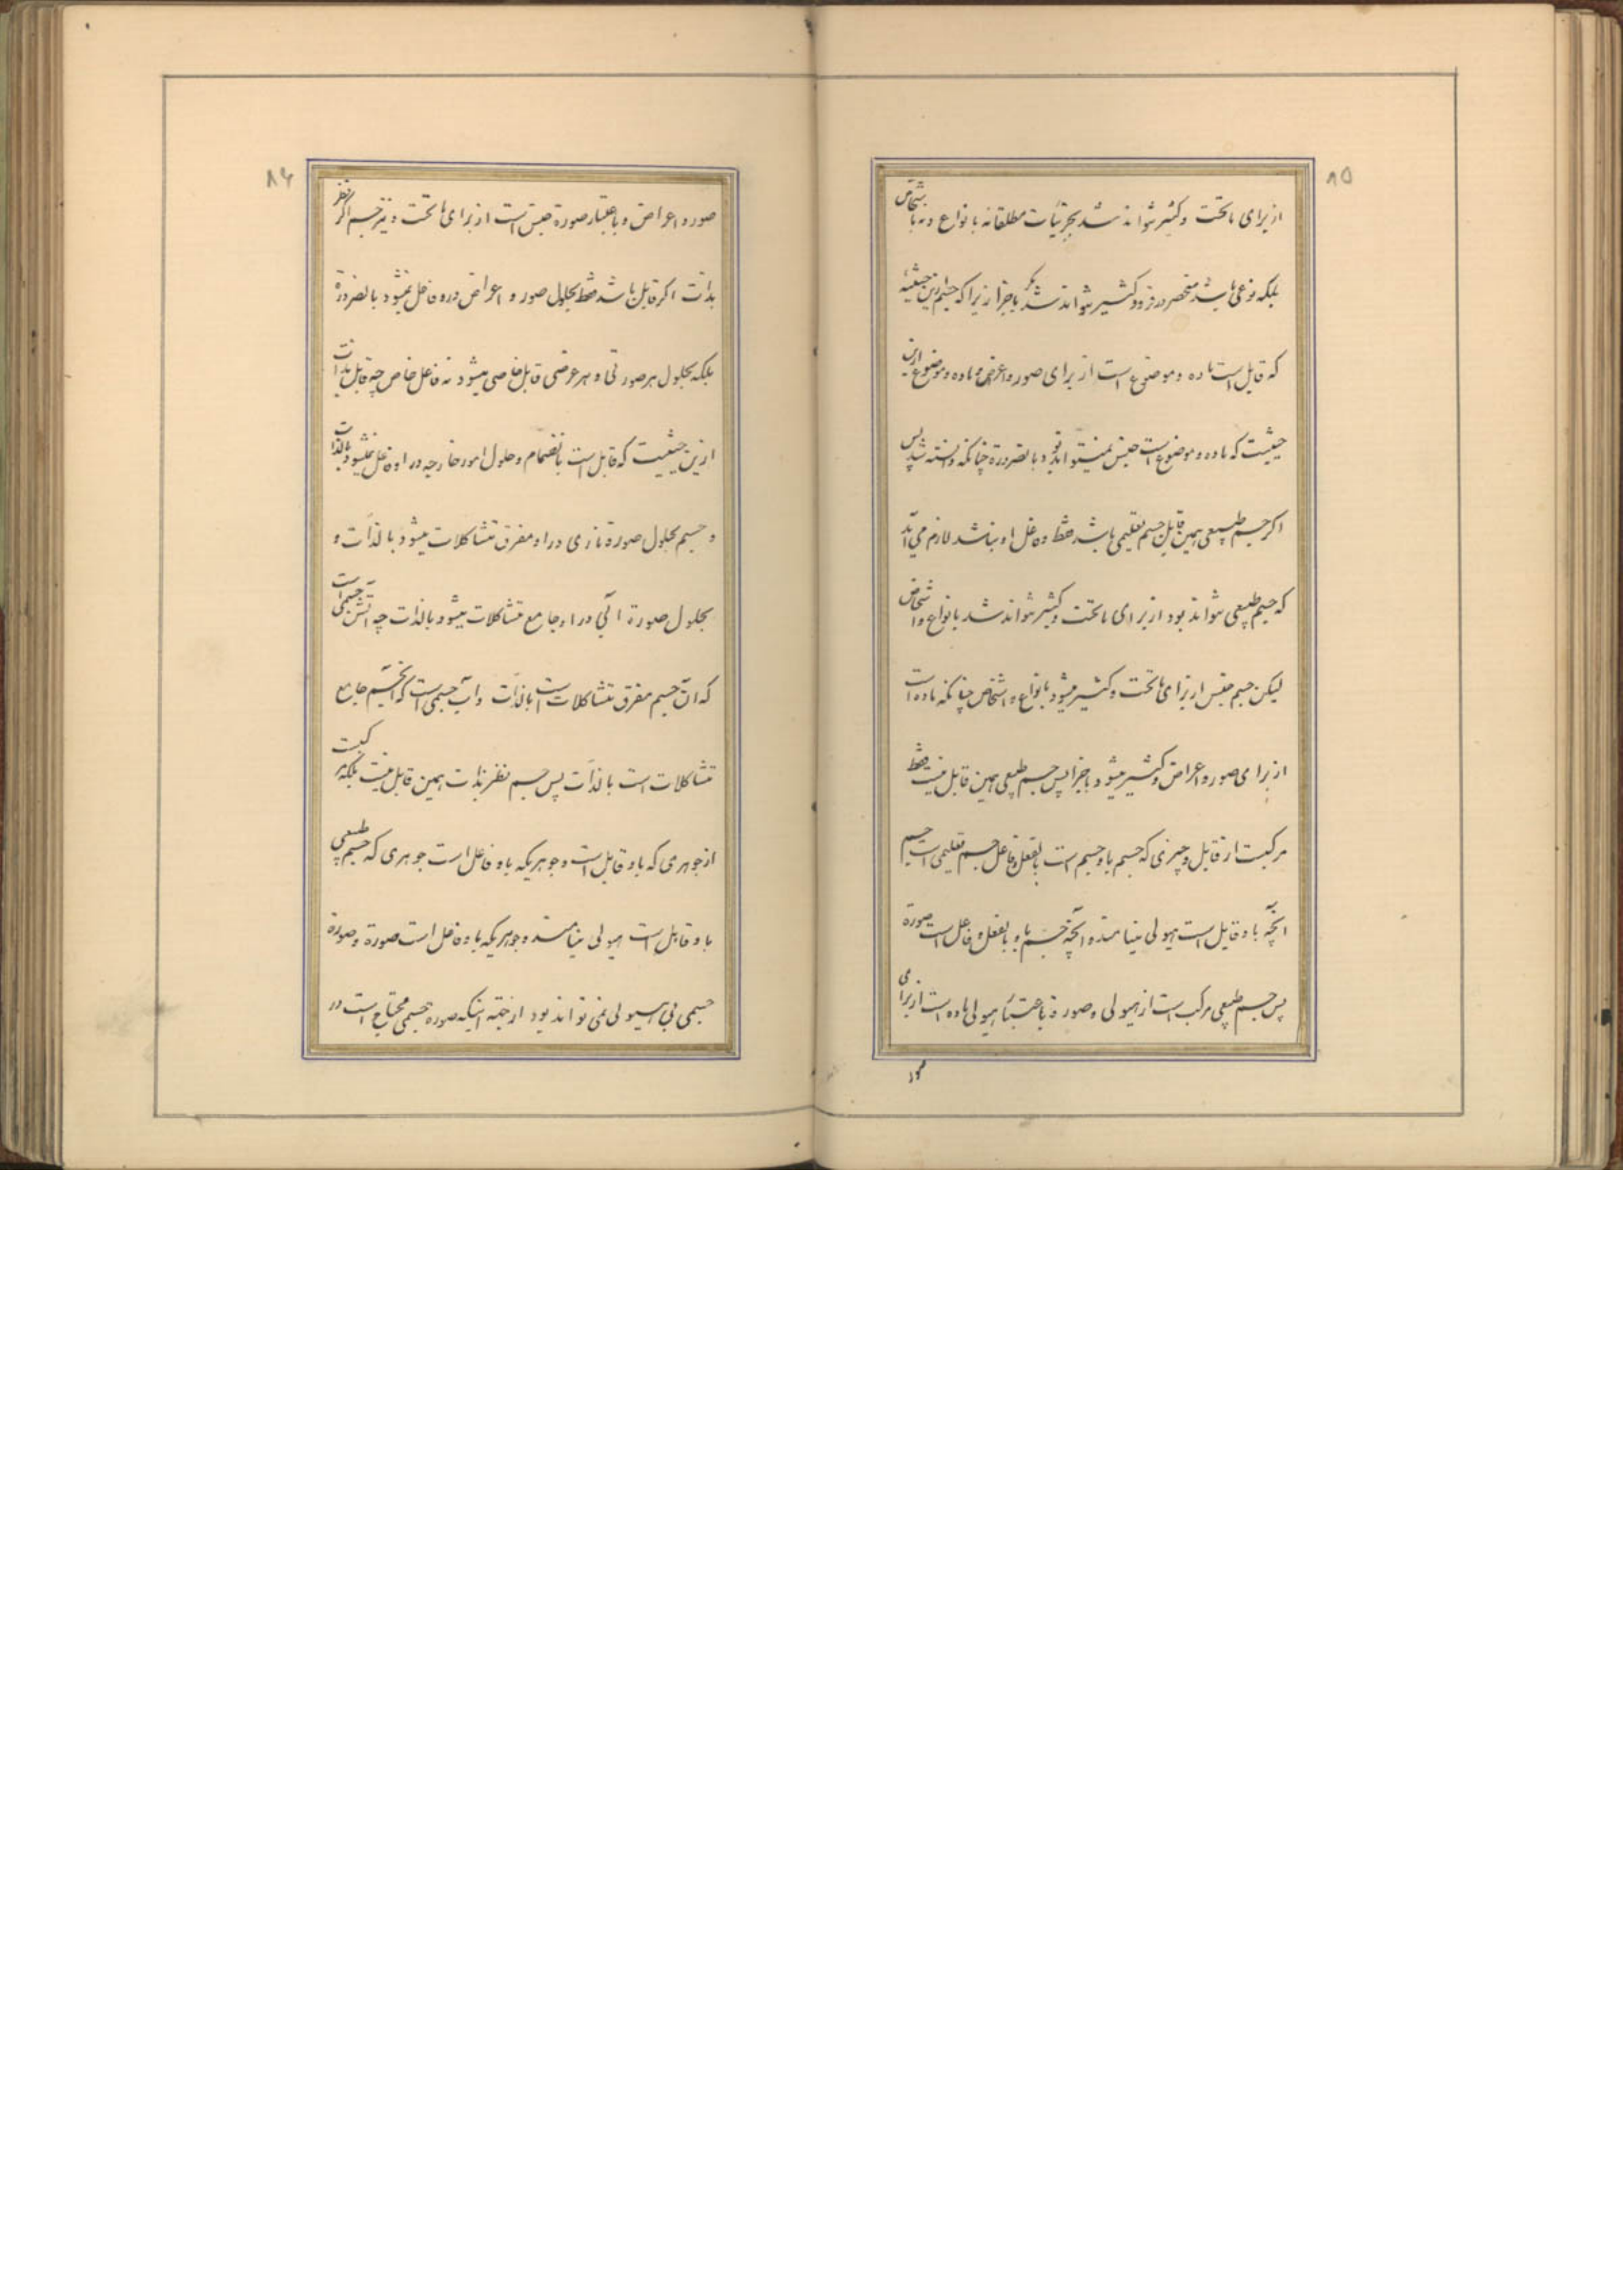 ۸۵
از برای ماتحت و کثیر نتواند شد بجزئیات مطلقا نه بانواع و نه باشخاص
بلکه نوعی باشد منحصر در فرد و کثیر نتواند شد مگر باجزا زیرا که جسم ازین حیثیته
که قابل است ماده و موضوع است از برای صور و اعراض و ماده و موضوع ازین
حیثیت که ماده و موضوع است جنس نمیتواند بود بالضرورة چنانکه دانسته شد پس
اگر جسم طبیعی همین قابل جسم تعلیمی باشد فقط و فاعل او نباشد لازم می آید
که جسم طبیعی نتواند بود از برای ماتحت و کثیر نتواند شد بانواع و اشخاص
لیکن جسم جنس از برای ماتحت و کثیر میشود بانواع و اشخاص چنانکه ماده است
از برای صور و اعراض و کثیر میشود باجزا پس جسم طبیعی همین قابل نیست فقط
مرکبست از قابل و چیزی که جسم باو جسم است بالفعل و فاعل جسم تعلیمی است جسم
آنچه باو قابل است هیولی مینامند و آنچه جسم باو بالفعل و فاعل است صورة
پس جسم طبیعی مرکب است از هیولی و صورة باعتبار هیولی ماده است از برای
صور
۸۶
صور و اعراض و باعتبار صورة جنس است از برای ماتحت و نیز جسم اگر نظر
بذات اگر قابل باشد فقط بحلول صور و اعراض درو فاعل نمیشود بالضرورة
بلکه بحلول هر صورتی و هر عرضی قابل خاصی میشود نه فاعل خاص چه قابل بذات
ازین حیثیت که قابل است بانضمام و حلول امور خارجه در او فاعل نمیشود بالذات
و جسم بحلول صورة ناری در او مفرق متشاکلات میشود بالذات و
بحلول صورة آبی در او جامع متشاکلات میشود بالذات چه آتش جسمی است
که آن جسم مفرق متشاکلات است بالذات و آب جسمی است که آن جسم جامع
متشاکلات است بالذات پس جسم نظر بذات همین قابل نیست بلکه مرکبست
از جوهری که باو قابل است و جوهریکه باو فاعل است جوهری که جسم طبیعی
باو قابل است هیولی مینامند و جوهریکه باو فاعل است صورة و صورة
جسمی بی هیولی نمی تواند بود از جهة اینکه صورة جسمی محتاج است در